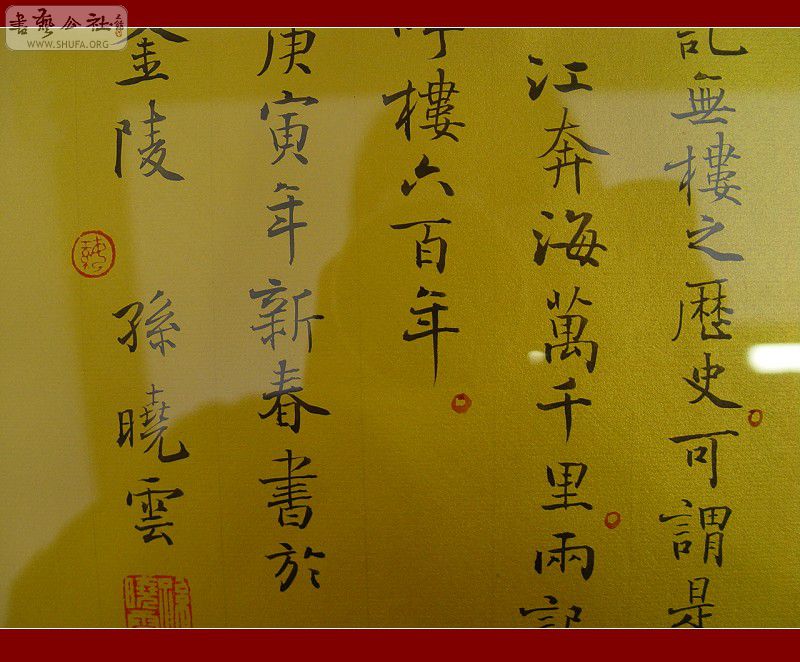 書藝公社
WWW.SHUFA.ORG
記無樓之歷史。可謂是
江奔海萬千里。兩記
呼樓六百年。
庚寅年新春書於
金陵 孫曉雲